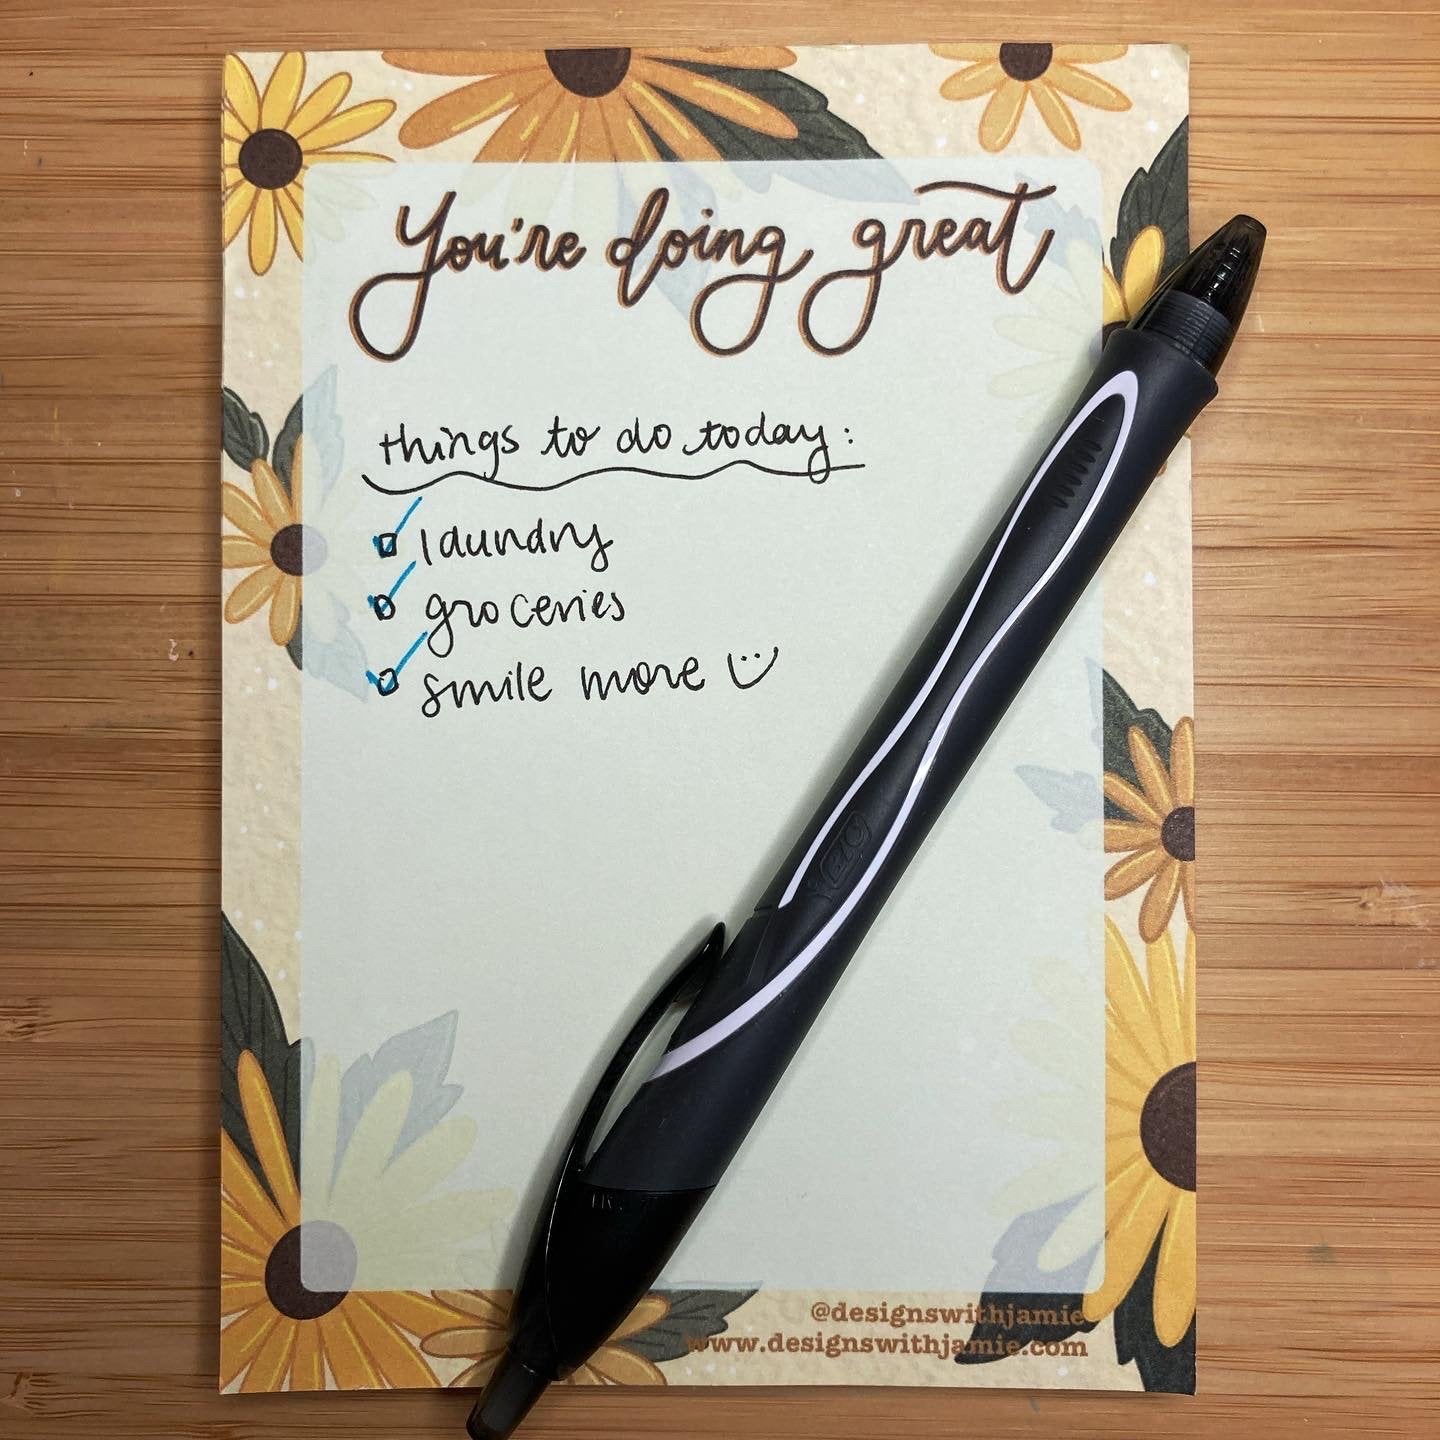 You're doing great
things to do today:
laundry
groceries
smile more
BIC
@designswithjamie
www.designswithjamie.com